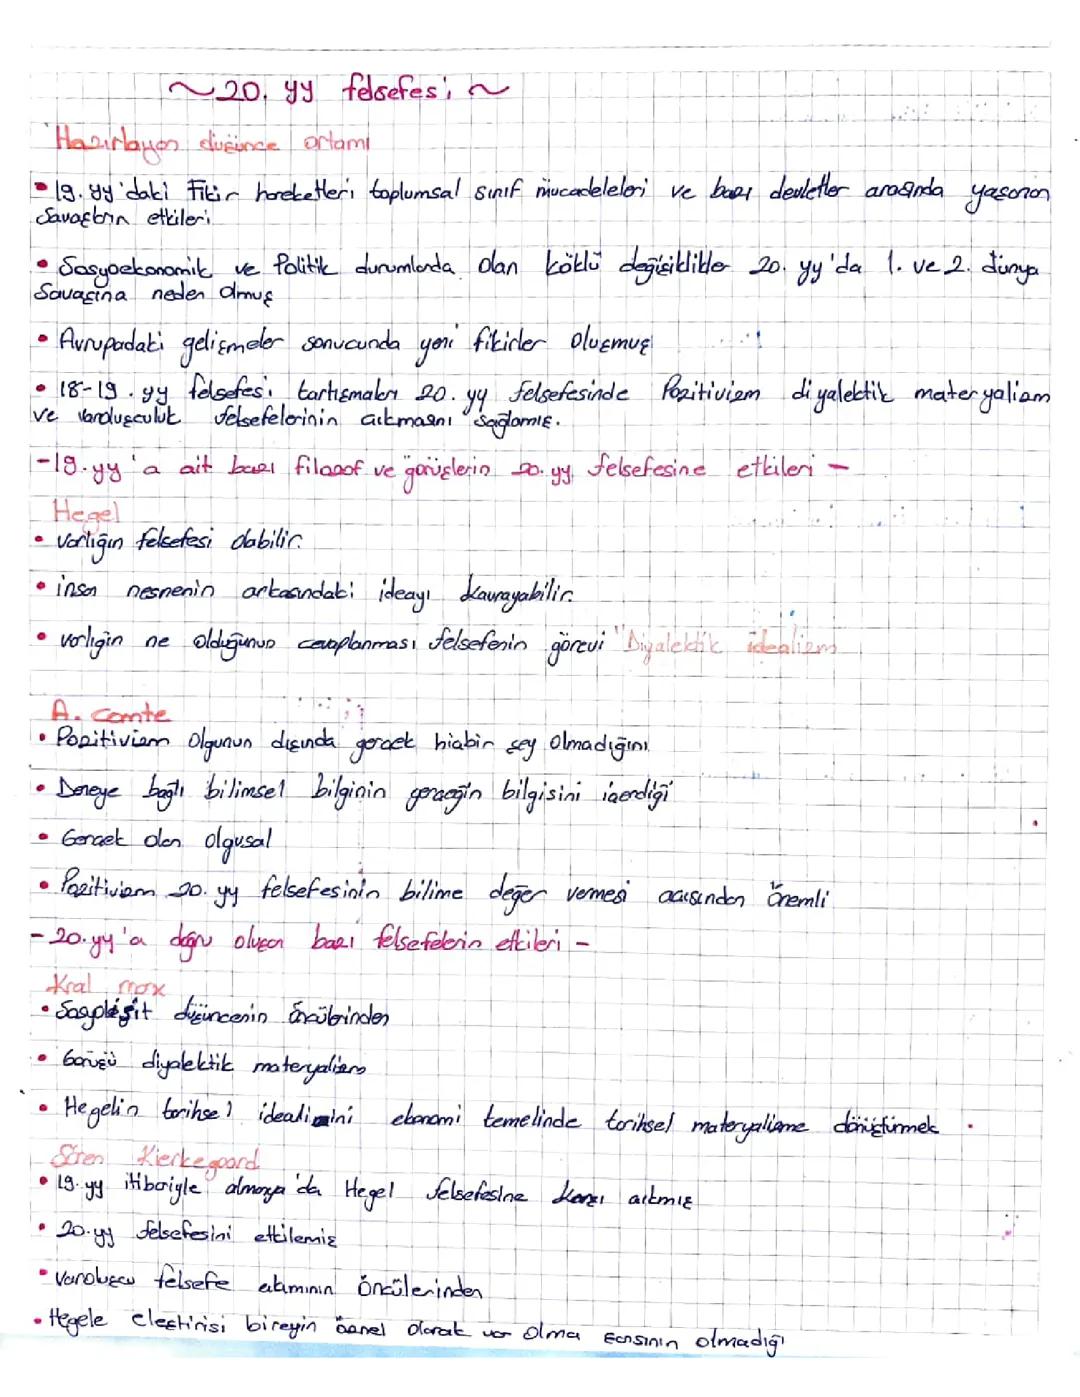 ~20. yy felsefesi~
Hazırlayan düşünce ortamı
• 19. yy'daki Fikir hareketleri toplumsal sınıf mücadeleleri ve bazı devletler arasında yaşanan
Savaşların etkileri.
• Sosyoekonomik ve Politik durumlarda olan köklü değişiklikler 20. yy'da 1. ve 2. dünya
Savaşına neden olmuş
• Avrupadaki gelişmeler sonucunda yeni fikirler oluşmuş
• 18-19. yy felsefesi tartışmaları 20. yy felsefesinde Pozitivizm diyalektik materyalizm
ve varoluşculuk felsefelerinin çıkmasını sağlamış.
-19.yy'a ait bazı filozof ve görüşlerin 20. yy. felsefesine etkileri -
Hegel
• varlığın felsefesi olabilir.
• insan nesnenin arkasındaki ideayı kavrayabilir.
• varlığın ne olduğunun cevaplanması felsefenin görevi "Diyalektik idealizm
A. Comte
• Pozitivizm Olgunun dışında gerçek hiçbir şey olmadığını
• Deneye bağlı bilimsel bilginin gerçeğin bilgisini içerdiği
• Gerçek olan olgusal
• Pozitivizm 20. yy felsefesinin bilime değer vermesi açısından önemli
- 20.yy'a doğru oluşan bazı felsefelerin etkileri -
Kral marx
• düşüncenin öncülerinden
• Görüşü diyalektik materyalizm
• Hegelin tarihsel idealizmini ekonomi temelinde tarihsel materyalizme dönüştürmek
Sören Kierkegaard
• 19. yy itibariyle almanya'da Hegel felsefesine karşı çıkmış
• 20.yy felsefesini etkilemiş
• Varoluşcu felsefe akımının öncülerinden
• Hegele eleştirisi bireyin öznel olarak var olma şansının olmadığı